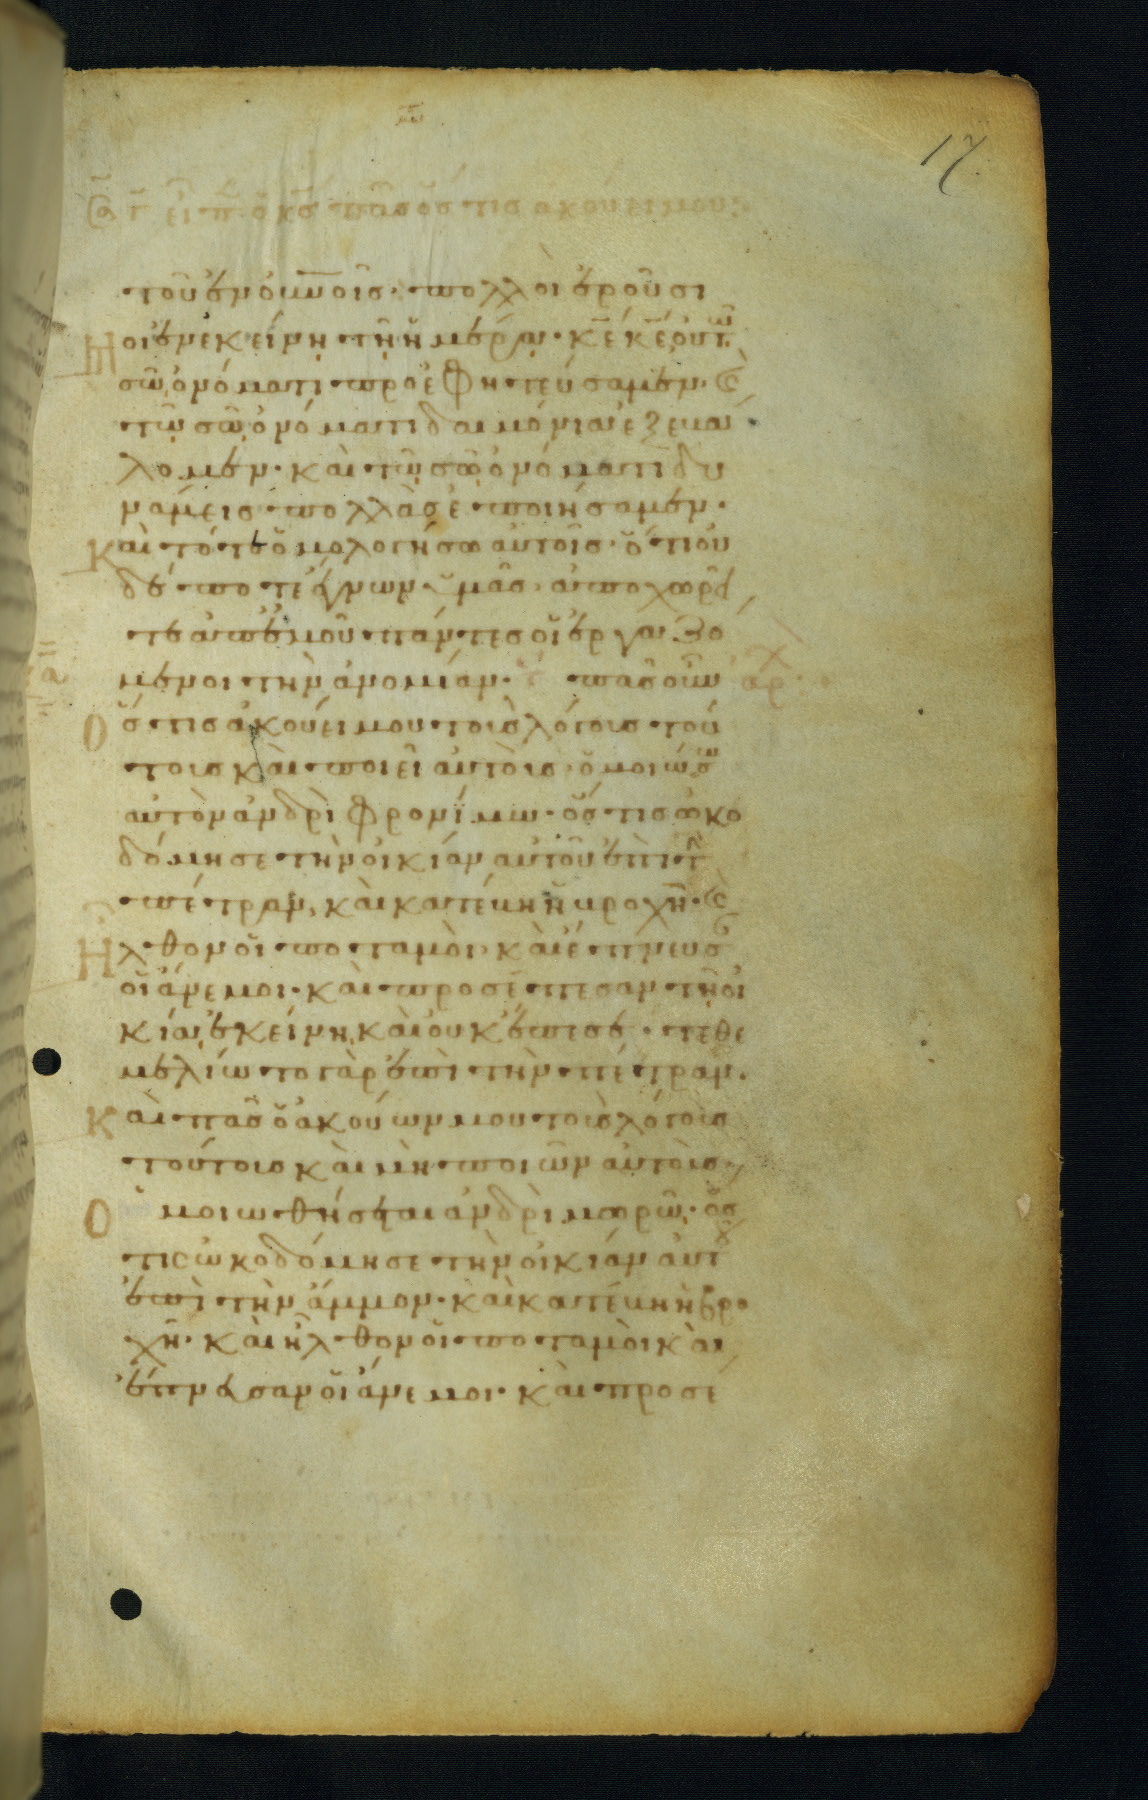 17
εἶπ ὁ κς πᾶς ὅστις ἀκούει μου:
τοῦ ἐν οὐνοις· πολλοὶ ἐροῦσί
μοι ἐν ἐκείνη τῆ ἡμέρα· κε κε οὐ τῶ
σῶ ὀνόματι προεφητεύσαμεν· καὶ
τῶ σῶ ὀνόματι δαιμόνια ἐξεβά
λομεν· καὶ τῶ σῶ ὀνόματι δυ
νάμεις πολλὰς ἐποιήσαμεν·
Καὶ τότε ὁμολογήσω αὐτοῖς· ὅτι οὐ
δέποτε ἔγνων ὑμᾶς· ἀποχωρεῖ
τε ἀπ ἐμοῦ πάντες οἱ ἐργαζό
μενοι τὴν ἀνομίαν· πᾶς οὖν
Ὅστις ἀκούει μου τοὺς λόγους τού
τους καὶ ποιεῖ αὐτοὺς· ὁμοιώσω
αὐτὸν ἀνδρὶ φρονίμω· ὅστις ὠκο
δόμησε τὴν οἰκίαν αὐτοῦ ἐπὶ τὴν
πέτραν, καὶ κατέβη ἡ βροχὴ· καὶ
Ἦλθον οἱ ποταμοὶ· καὶ ἔπνευσ
οἱ ἄνεμοι· καὶ προσέπεσαν τῆ οἰ
κία ἐκείνη, καὶ οὐκ ἔπεσε· τεθε
μελίωτο γὰρ ἐπὶ τὴν πέτραν·
Καὶ πᾶς ὁ ἀκούων μου τοὺς λόγους
τούτους καὶ μὴ ποιῶν αὐτοὺς,
Ὁμοιωθήσεται ἀνδρὶ μωρῶ· ὅσ
τις ὠκοδόμησε τὴν οἰκίαν αὐτοῦ
ἐπὶ τὴν ἄμμον· καὶ κατέβη ἡ βρο
χὴ· καὶ ἦλθον οἱ ποταμοὶ καὶ
ἔπνευσαν οἱ ἄνεμοι· καὶ προσέ